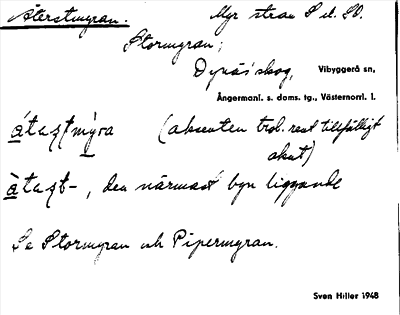 Återstmyran. Myr strax S el. SO.
Stormyran;
Dynäs skog, Vibyggerå sn,
Ångermanl. s. doms. tg., Västernorrl. l.
átaʂtmýra (aksenten trol. rent tillfälligt
akut)
àtaʂt-, den närmast byn liggande
Se Stormyran och Pipermyran.
Sven Hiller 1948